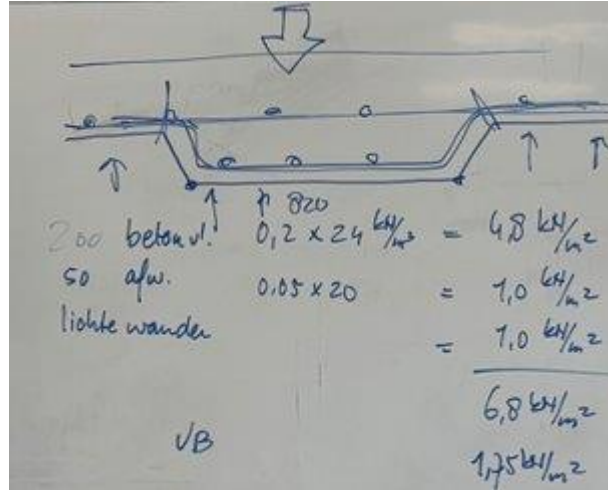 820
200 betonvl. 0,2 x 24 kN/m³ = 4,8 kN/m²
50 afw. 0,05 x 20 = 1,0 kN/m²
lichte wanden = 1,0 kN/m²
6,8 kN/m²
VB 1,75 kN/m²